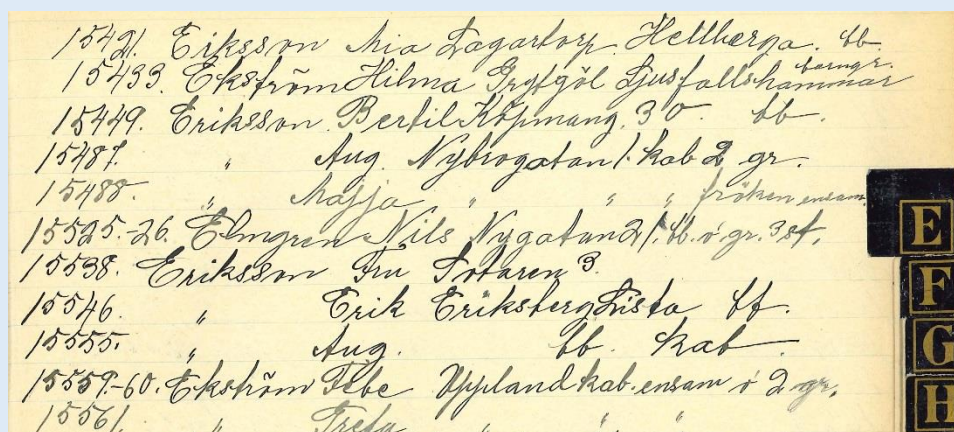 15421. Eriksson Mia Lagartorp Hellberga. bb.
15433. Ekström Hilma Grytgöl Ljusfallshammar barngr.
15449. Eriksson. Bertil Köpmang. 30. bb.
15487. " Aug. Nybrogatan 1. kab 2 gr.
15488. " Majja " " " fröken ensam
15525.-26. Elmgren Nils Nygatan 21. bb. o gr. 3 st.
15538. Eriksson Fru Sotaren 3.
15546. " Erik Eriksberg Lista bf.
15555. " Aug. bb. kab
15559.-60. Ekström Febe Uppland kab. ensam o 2 gr.
15561. " Greta " " "
E
F
G
H